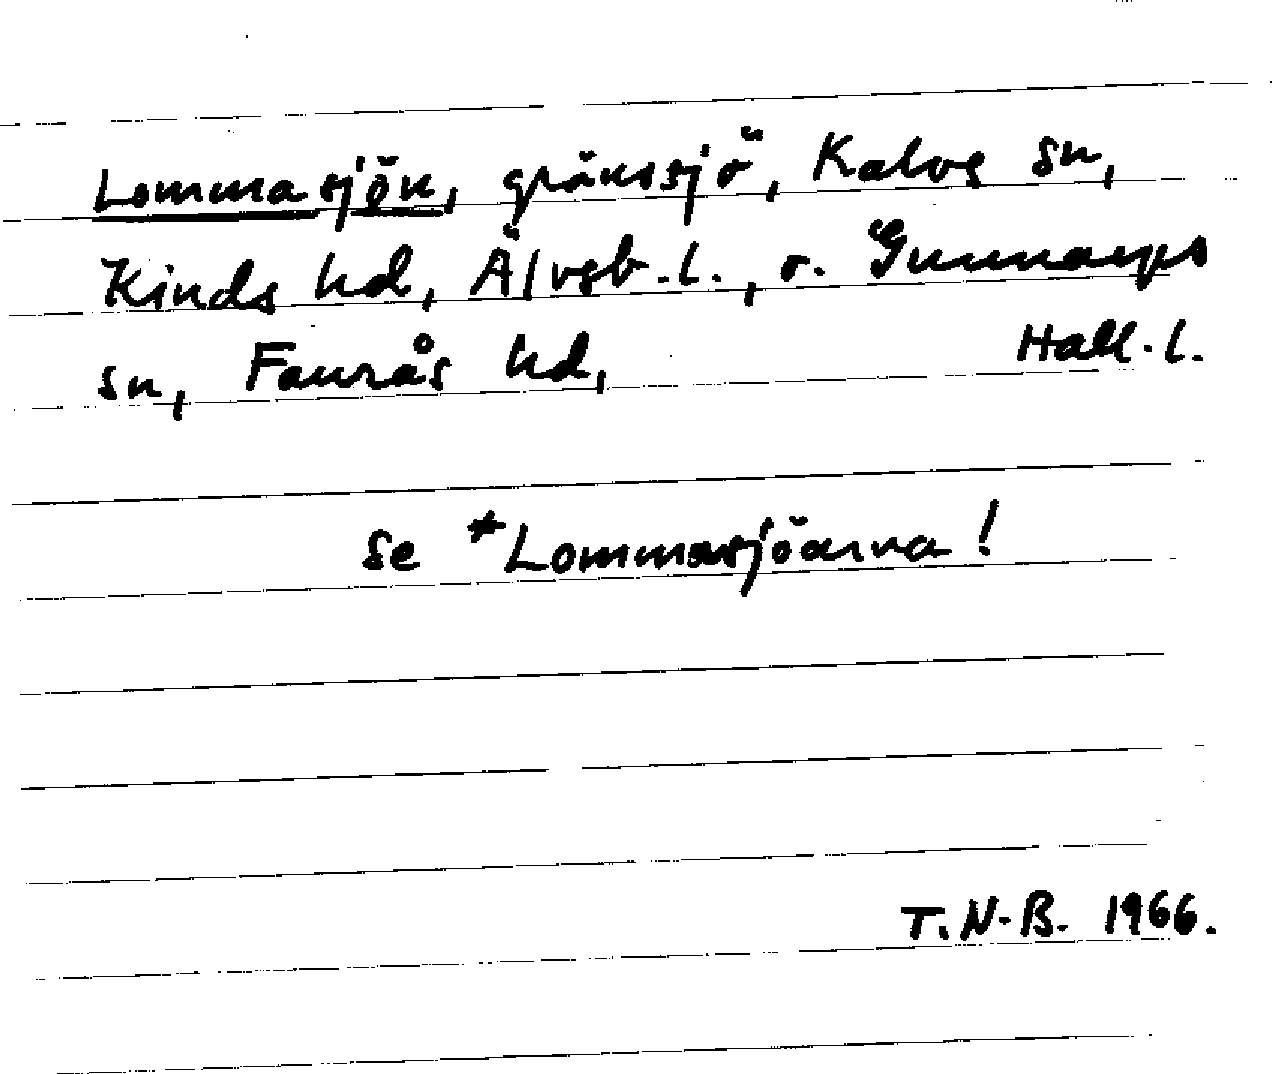 Lommasjön, gränssjö, Kalvs sn,
Kinds hd, Älvsb. l., o. Gunnarps
sn, Faurås hd, Hall. l.
se *Lommasjöarna!
T. N-B. 1966.